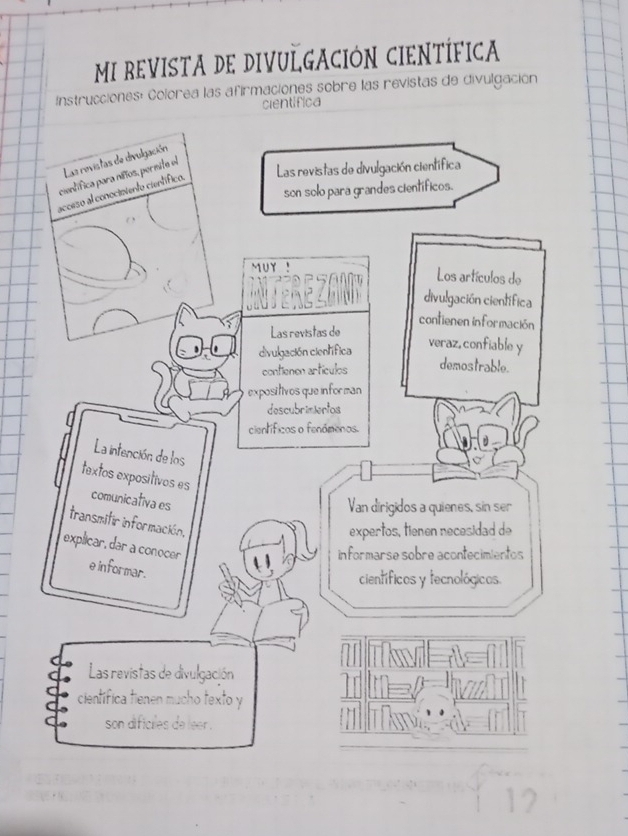 MI REVISTA DE DIVULGACIÓN CIENTÍFICA
Instrucciones: Colorea las afirmaciones sobre las revistas de divulgación
científica
Las revistas de divulgación
científica para niños, permite el
acceso al conocimiento científico.
Las revistas de divulgación científica
son solo para grandes científicos.
MUY !
INTEREZANT
Las revistas de
divulgación científica
contienen artículos
expositivos que informan
descubrimientos
científicos o fenómenos.
Los artículos de
divulgación científica
contienen información
veraz, confiable y
demostrable.
La intención de los
textos expositivos es
comunicativa es
transmitir información,
explicar, dar a conocer
e informar.
Van dirigidos a quienes, sin ser
expertos, tienen necesidad de
informarse sobre acontecimientos
científicos y tecnológicos.
Las revistas de divulgación
científica tienen mucho texto y
son difíciles de leer.
12